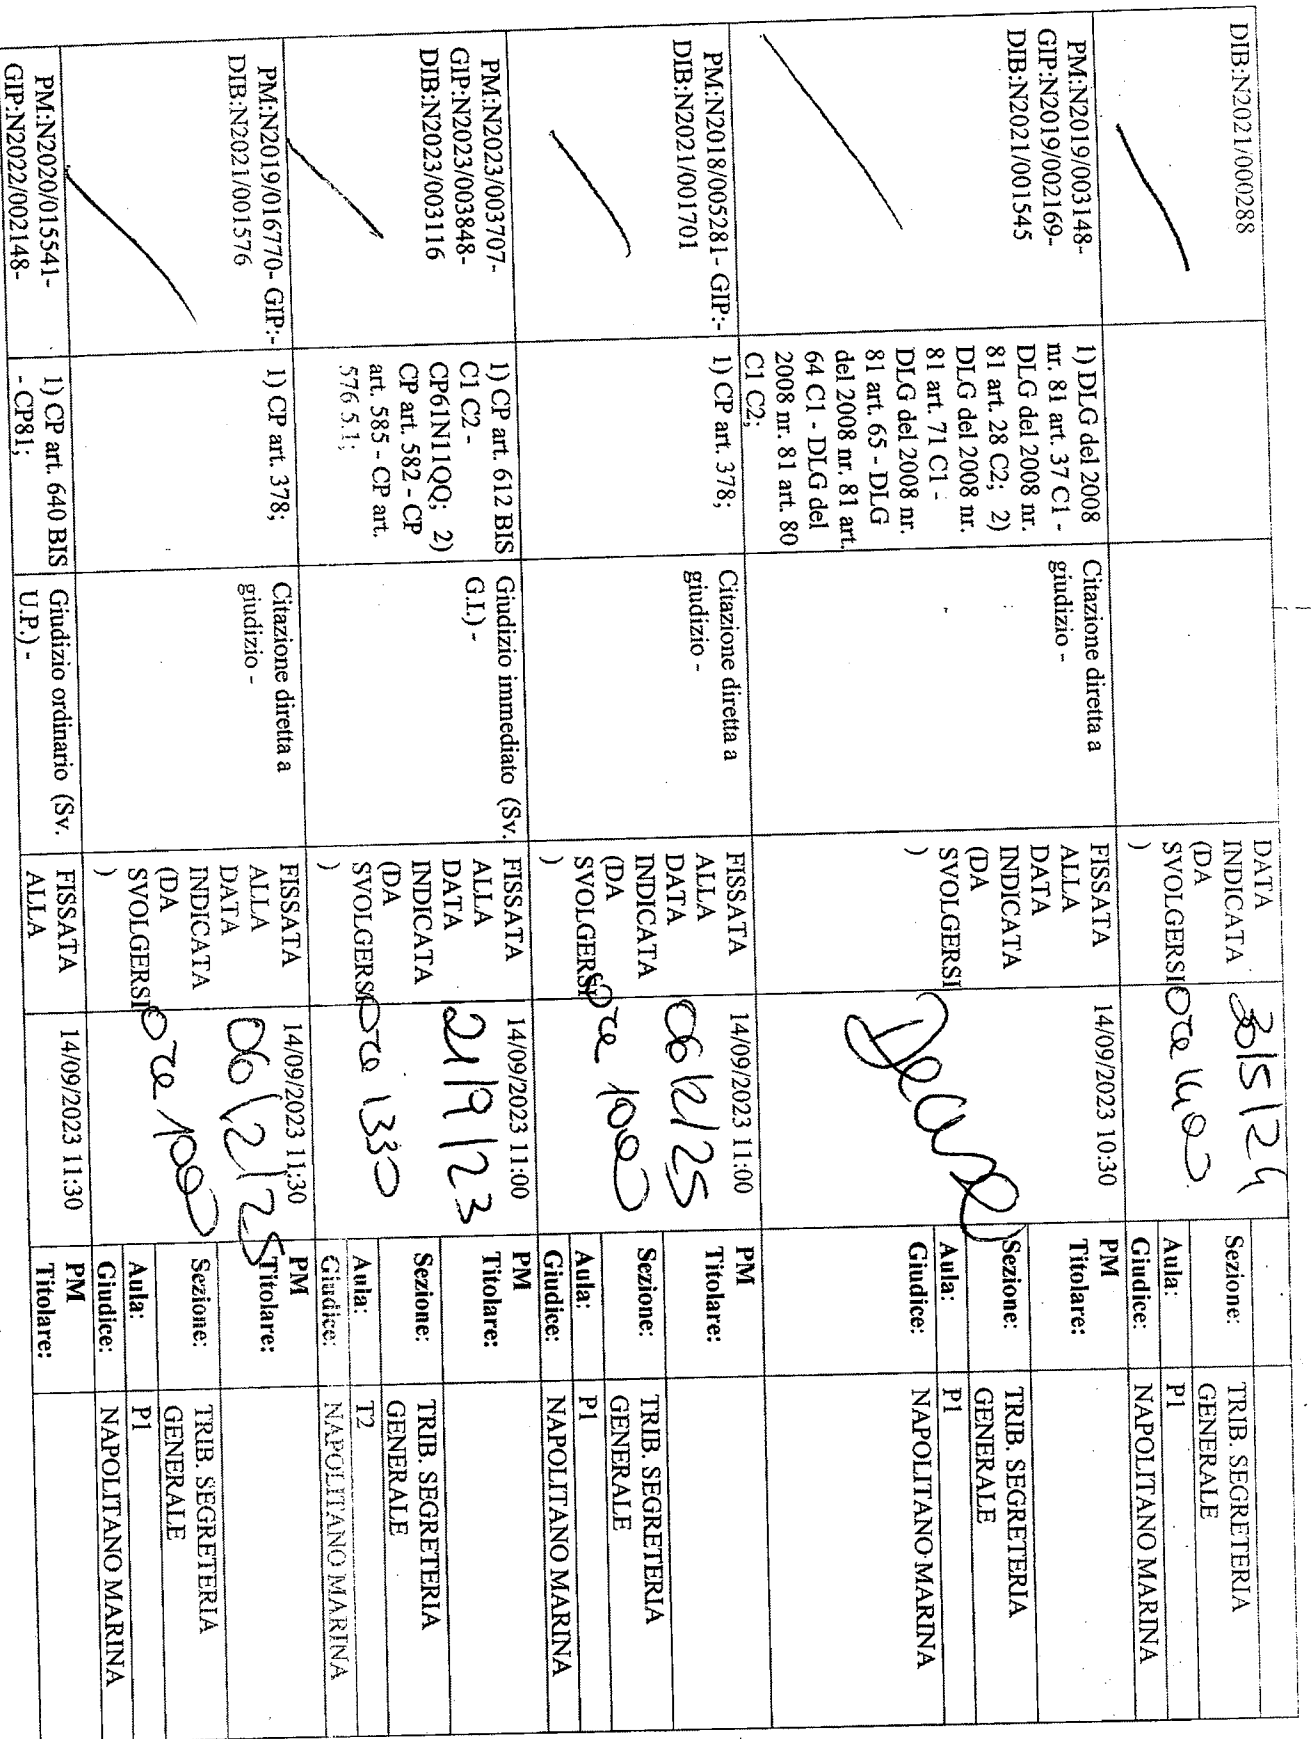 DIB:N2021/000288
DATA
INDICATA
(DA
SVOLGERSI
)
30/5/24
ore
Sezione:
TRIB. SEGRETERIA
GENERALE
Aula:
P1
Giudice:
NAPOLITANO MARINA
PM:N2019/003148-
GIP:N2019/002169-
DIB:N2021/001545
1) DLG del 2008
nr. 81 art. 37 C1 -
DLG del 2008 nr.
81 art. 28 C2; 2)
DLG del 2008 nr.
81 art. 71 C1 -
DLG del 2008 nr.
81 art. 65 - DLG
del 2008 nr. 81 art.
64 C1 - DLG del
2008 nr. 81 art. 80
C1 C2;
Citazione diretta a
giudizio -
FISSATA
ALLA
DATA
INDICATA
(DA
SVOLGERSI
)
14/09/2023 10:30
PM
Titolare:
Sezione:
TRIB. SEGRETERIA
GENERALE
Aula:
P1
Giudice:
NAPOLITANO MARINA
PM:N2018/005281- GIP:-
DIB:N2021/001701
1) CP art. 378;
Citazione diretta a
giudizio -
FISSATA
ALLA
DATA
INDICATA
(DA
SVOLGERSI
)
14/09/2023 11:00
06/2/25
ore 1000
PM
Titolare:
Sezione:
TRIB. SEGRETERIA
GENERALE
Aula:
P1
Giudice:
NAPOLITANO MARINA
PM:N2023/003707-
GIP:N2023/003848-
DIB:N2023/003116
1) CP art. 612 BIS
C1 C2 -
CP61N11QQ; 2)
CP art. 582 - CP
art. 585 - CP art.
576 5.1;
Giudizio immediato (Sv.
G.I.) -
FISSATA
ALLA
DATA
INDICATA
(DA
SVOLGERSI
)
14/09/2023 11:00
21/9/23
ore 1330
Titolare:
Sezione:
TRIB. SEGRETERIA
GENERALE
Aula:
T2
Giudice:
NAPOLITANO MARINA
PM:N2019/016770- GIP:-
DIB:N2021/001576
1) CP art. 378;
Citazione diretta a
giudizio -
FISSATA
ALLA
DATA
INDICATA
(DA
SVOLGERSI
)
14/09/2023 11:30
06/2/25
ore 1000
PM
Titolare:
Sezione:
TRIB. SEGRETERIA
GENERALE
Aula:
P1
Giudice:
NAPOLITANO MARINA
PM:N2020/015541-
GIP:N2022/002148-
1) CP art. 640 BIS
- CP81;
Giudizio ordinario (Sv.
U.P.) -
FISSATA
ALLA
14/09/2023 11:30
PM
Titolare: